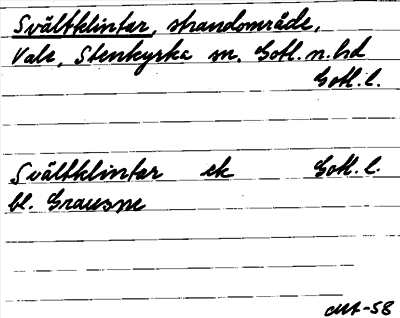 Svältklintar, strandområde,
Vale, Stenkyrka sn. Gotl. n. hd
Gotl. l.
Svältklintar ek Gotl. l.
bl. Grausne
-58